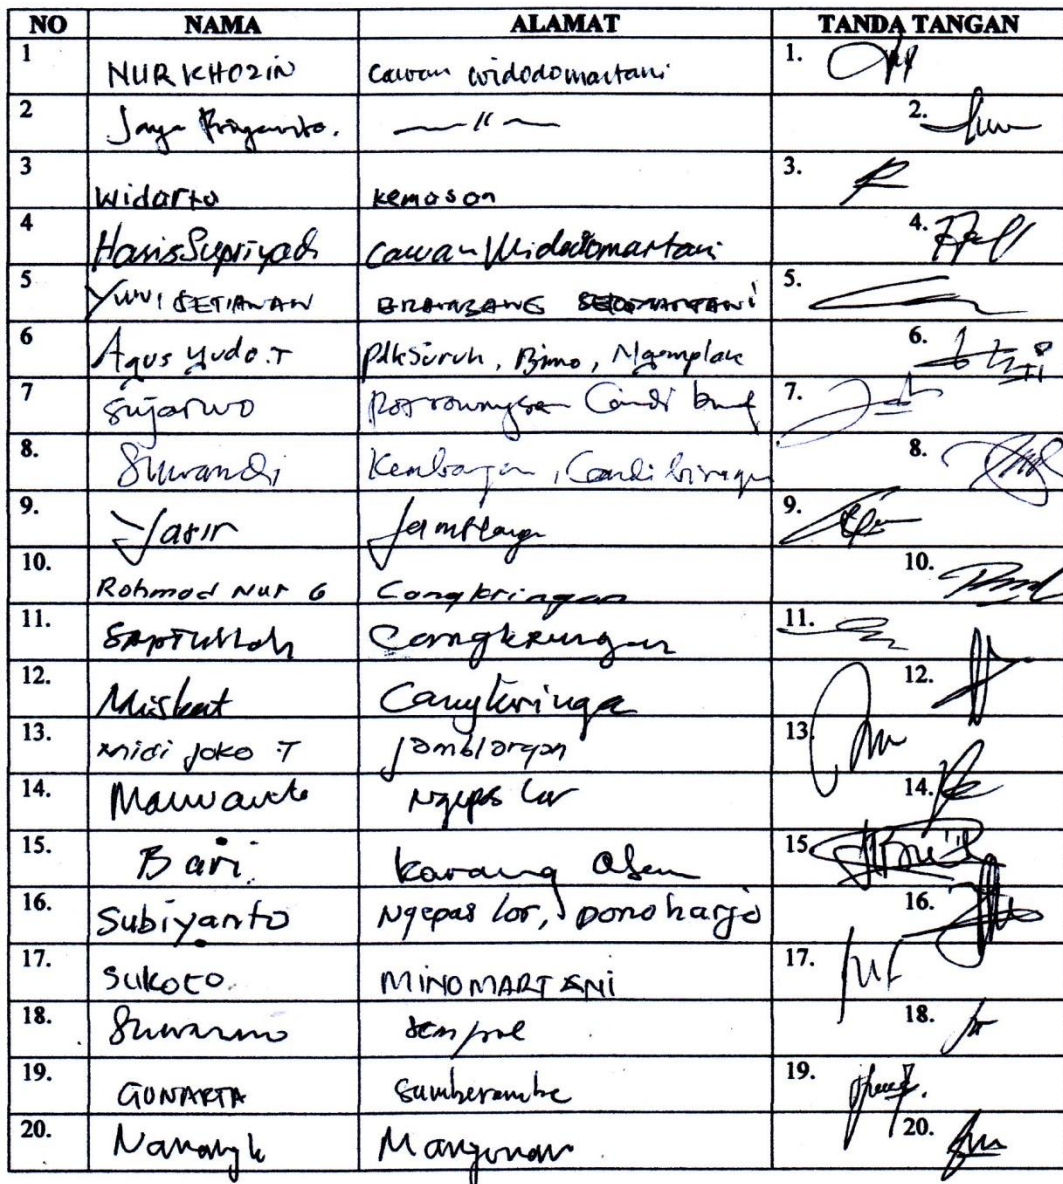 NO NAMA ALAMAT TANDA TANGAN
1 NUR KHOZIN Cawan Widodomartani 1.
2 Jaya Priyanto. — 〃 — 2.
3 Widarto Kemasan 3.
4 Haris Supriyadi Cawan Widodomartani 4.
5 YUNI SETIAWAN SEDOMARTANI 5.
6 Agus Yudo.T Pdksuruh, Bimo, Ngemplak 6.
7 Sujarwo Candi 7.
8. Suwandi Kembangan, Candibinangun 8.
9. Yasir 9.
10. Rohmad Nur G Cangkringan 10.
11. Cangkringan 11.
12. Miskat Cangkringa 12.
13. Joko T Jamblangan 13.
14. Ngepas Lor 14.
15. Bari Karang Asem 15.
16. Subiyanto Ngepas lor, Donoharjo 16.
17. Sukoco MINOMARTANI 17.
18. Suwarno 18.
19. GUNARTA Sumberambe 19.
20. Nanang k 20.